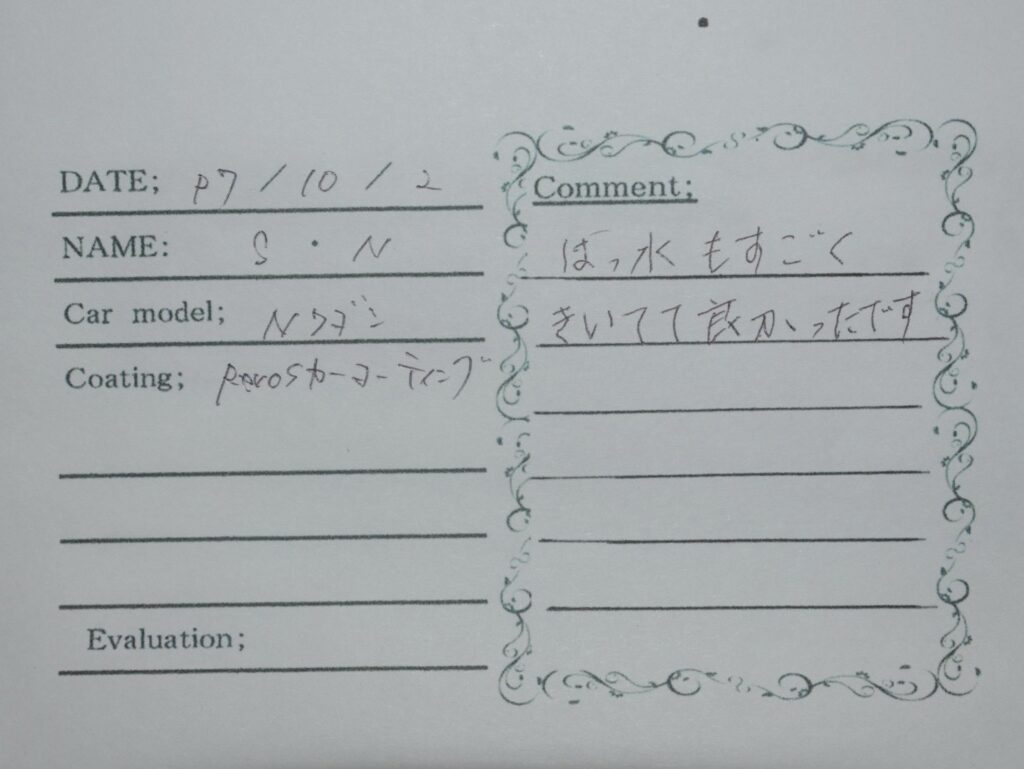 DATE; R7/10/2
NAME: S・N
Car model; Nワゴン
Coating; Revosカーコーティング
Evaluation;
Comment;
はっ水もすごく
きいてて良かったです